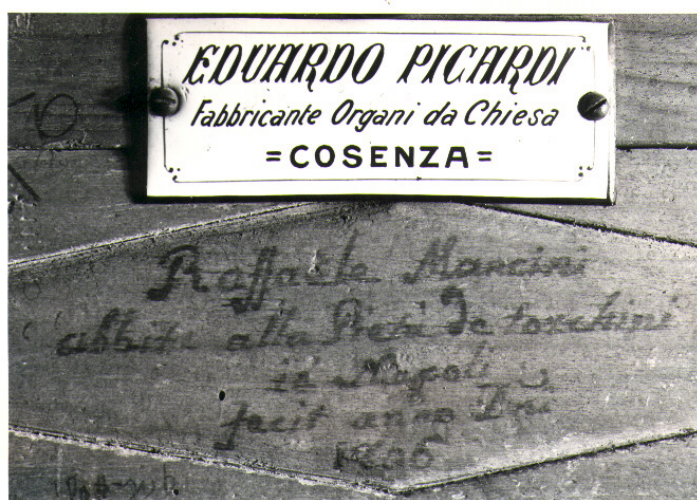 EDUARDO PICARDI
Fabbricante Organi da Chiesa
=COSENZA=
Raffaele Mancini
abbita alla Pietà de torchini
in Napoli
fecit anno